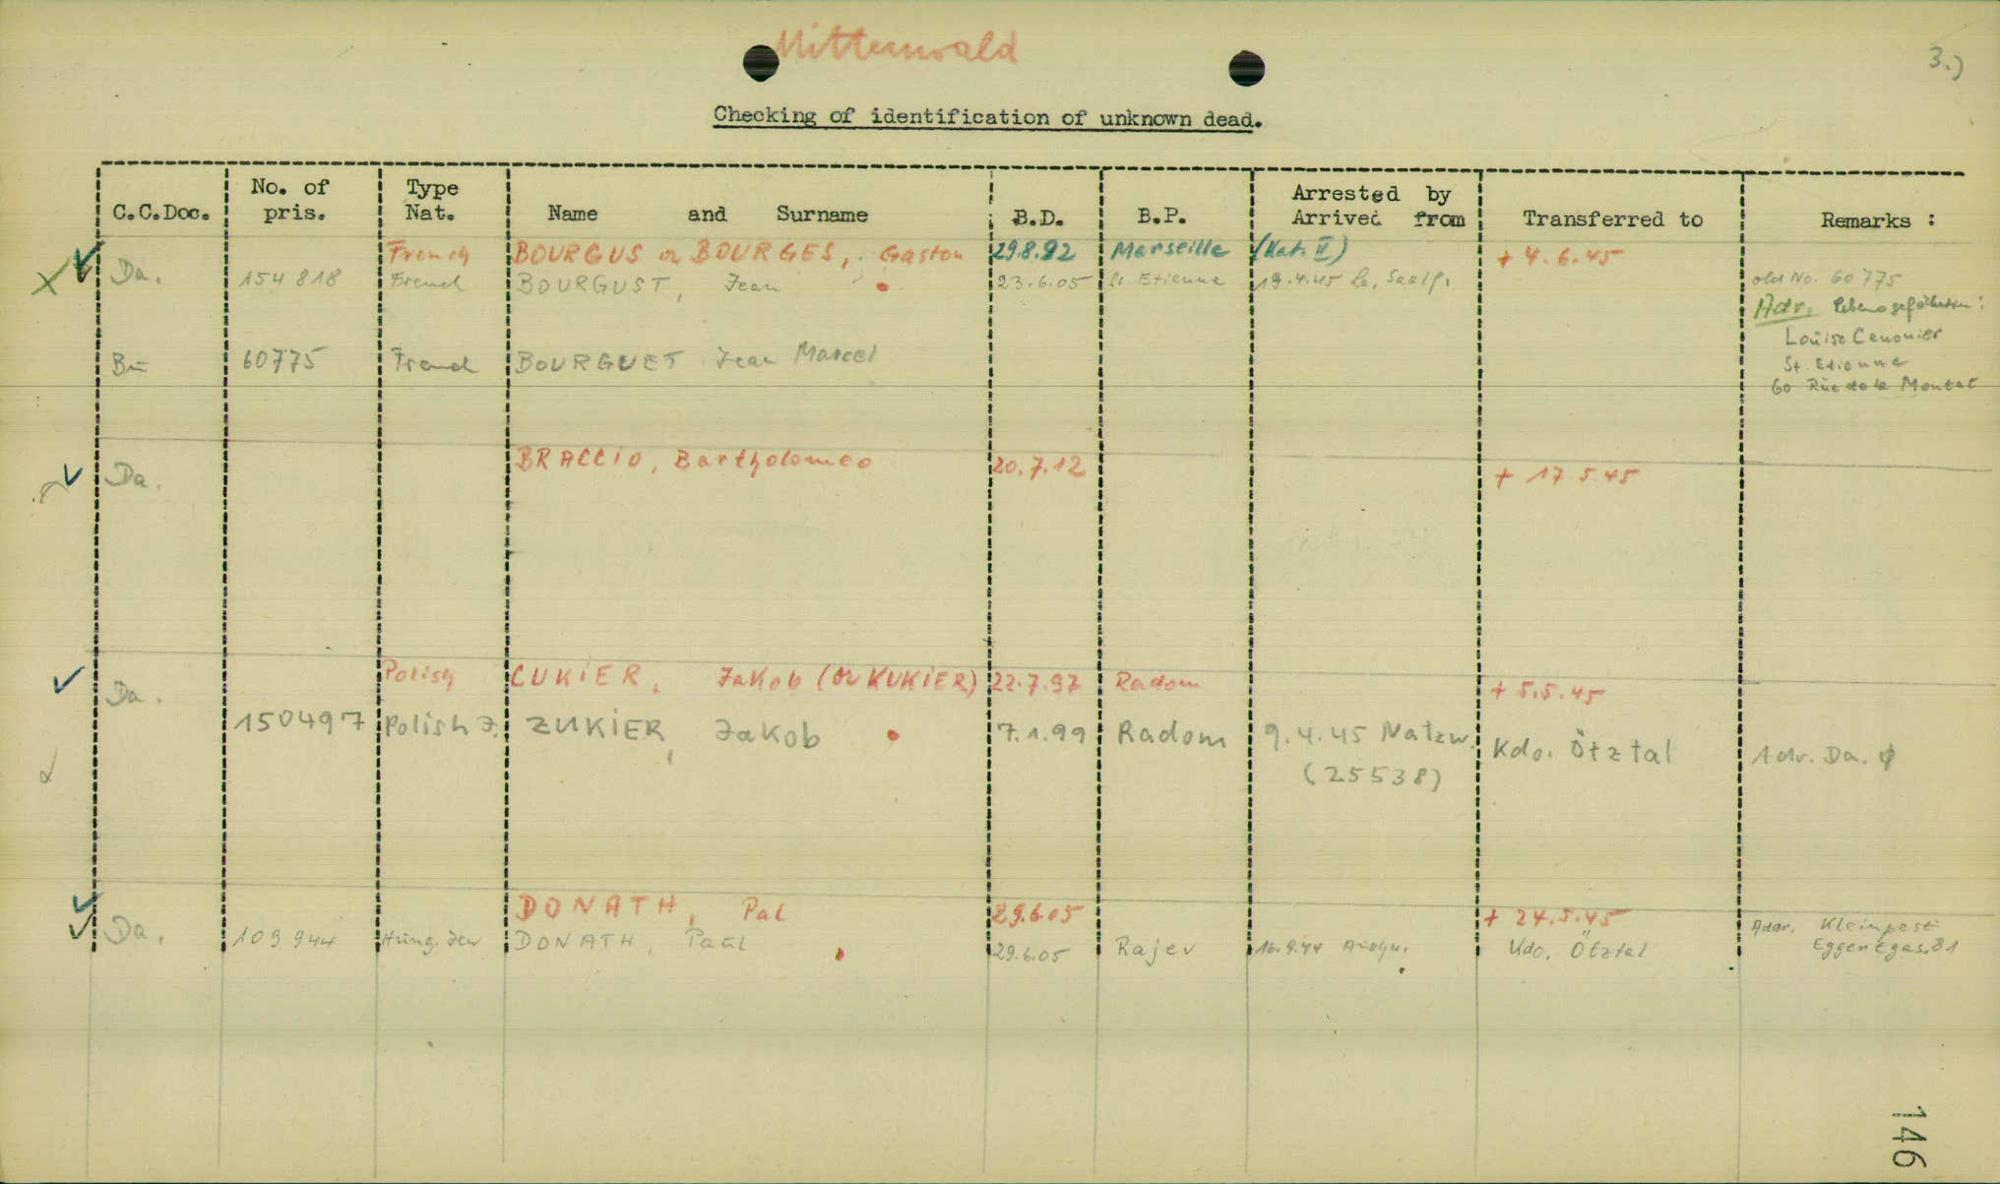 Mittenwald
3.)
Checking of identification of unknown dead.
C.C.Doc. No. of pris. Type Nat. Name and Surname B.D. B.P. Arrested by Arrived from Transferred to Remarks :
French BOURGUS or BOURGES, Gaston 29.8.92 Marseille (Nat. II) + 4.6.45
Da. 154818 French BOURGUST, Jean 23.6.05 St. Etienne 19.4.45 Saalf. old No. 60775
Adr. Lebensgefährtin:
Louise
St. Etienne
Bu 60775 French BOURGUET Jean Marcel
60 Rue de la Montat
Da. BRACCIO, Bartholomeo 20.7.12 + 17.5.45
Polish CUKIER, Jakob (or KUKIER) 22.7.97 Radom + 5.5.45
Da.
150497 Polish J. ZUKIER, Jakob 7.1.99 Radom 9.4.45 Natzw. Kdo. Ötztal Adr. Da.
(25538)
DONATH, Pal 29.6.05 + 24.5.45
Da. 109944 Hung. Jew DONATH, Paul 29.6.05 Rajev 16.9.44 Kdo. Ötztal Adr. Kleinpest
146